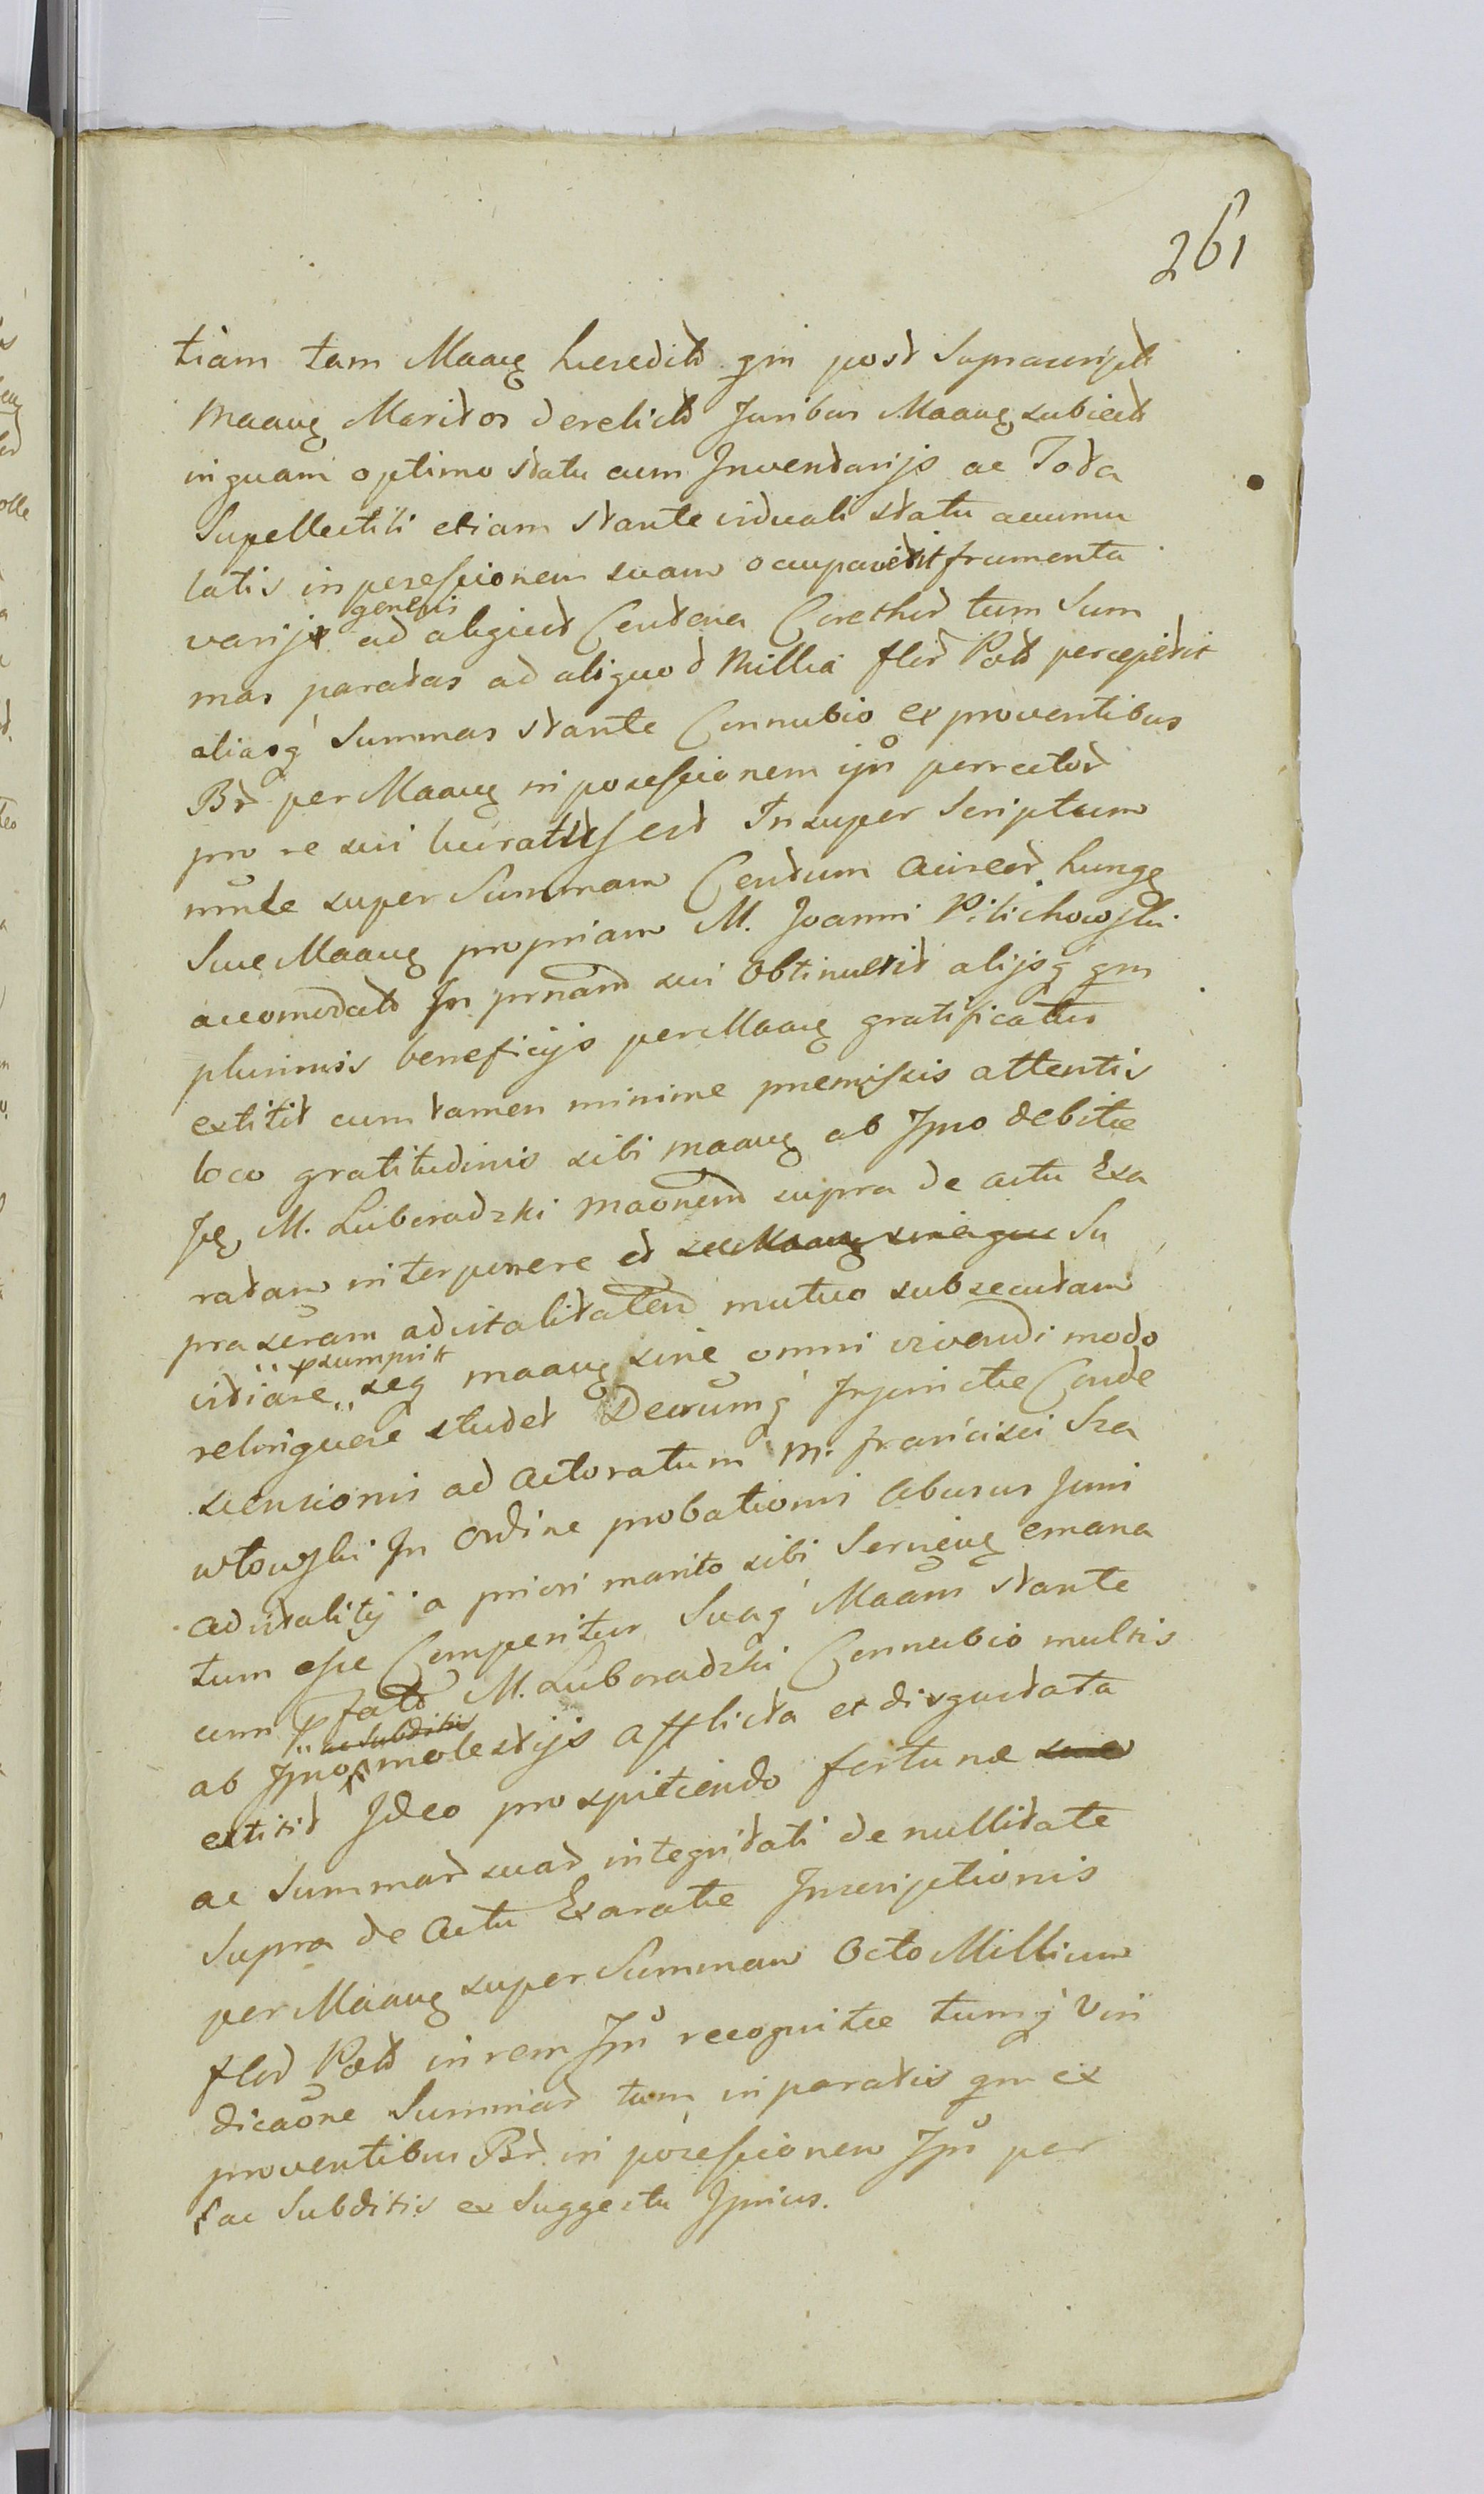 261
tiam tam Maaug hereditd qm post Suprascriptd
Maaug Maritos derelictd Juribus Maaug subiectd
inquam optimo statu cum Inventarijs ac Tota
Supellectili etiam stante viduali statu accumu
latis in possessionem suam occupaverit frumenta
varijs generis ad aliquot Centena Corethor tum Sum
mas paratas ad aliquod Millia flor Pold perceperit
aliasq Summas stante Connubio ex proventibus
Br per Maaug in possessionem ipr perceptor
pro re sui lucratus est Insuper Scriptum
super Summam Centum Aureor hung
Sue Maaug propriam M. Joanni Pilichowski
accomodatd In prnam sui obtinuerit alijsq qm
plurimis beneficijs per Maaug gratificatus
extitit cum tamen minime premissis attentis
loco gratitudinis sibi maaug ab Jpso debitae
M. Luboradzki supra de actu Exa
ratam interponere et Su
pra advitalitatem mutuo subsecutam
seq maaug sine omni vivendi modo
relinquere studet Decrumq Injunctae Conde
scensionis ad Actoratum M. francisci Sza
wlowski In Ordine probationis Abusus Juni
advitalitij a priori marito sibi Servieng emana
tum esse Comperitur Suaq Maam stante
cum pfato M. Luboradzki Connubio multis
ab Jpso ac Subditis molestijs afflicta et disgustata
extitit Ideo prospiciendo fortunae suae
ac Summar suar integritati de nullitate
Supra de Actu Exaratae Inscriptionis
per Maaug super Summam Octo Millium
flor Pold in rem Jpr recognitae tumq Vin
dicaone Summar tum in paratis qm ex
proventibus Br in possessionem Jpr per
ac Subditis ex Suggestu Jpsius.